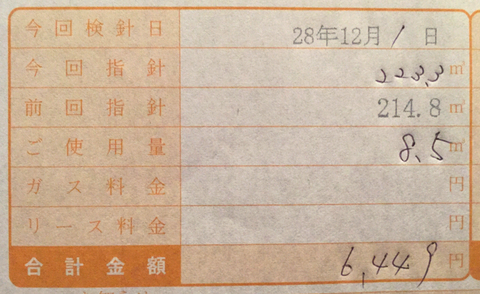 今回検針日 28年12月1日
今回指針 223.3㎥
前回指針 214.8㎥
ご使用量 8.5㎥
ガス料金 円
リース料金 円
合計金額 6,449円